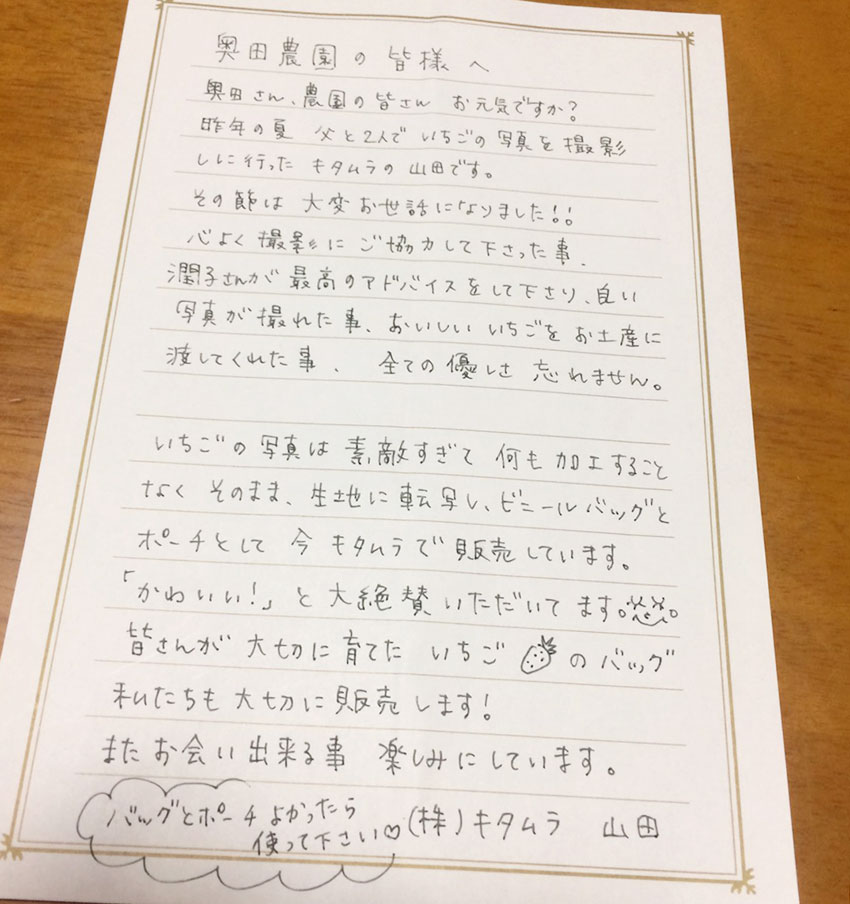 奥田農園の皆様へ
奥田さん、農園の皆さん お元気ですか?
昨年の夏 父と2人で いちごの写真を撮影
しに行った キタムラの山田です。
その節は 大変お世話になりました!!
心よく撮影にご協力して下さった事、
潤子さんが最高のアドバイスをして下さり、良い
写真が撮れた事、おいしい いちごをお土産に
渡してくれた事、 全ての優しさ 忘れません。
いちごの写真は素敵すぎて 何も加工すること
なく そのまま、生地に転写し、ビニールバッグと
ポーチとして 今 キタムラで販売しています。
「かわいい!」と大絶賛いただいてます。
皆さんが 大切に育てた いちご のバッグ
私たちも大切に販売します!
またお会い出来る事 楽しみにしています。
バッグとポーチよかったら
使って下さい♡
(株)キタムラ 山田